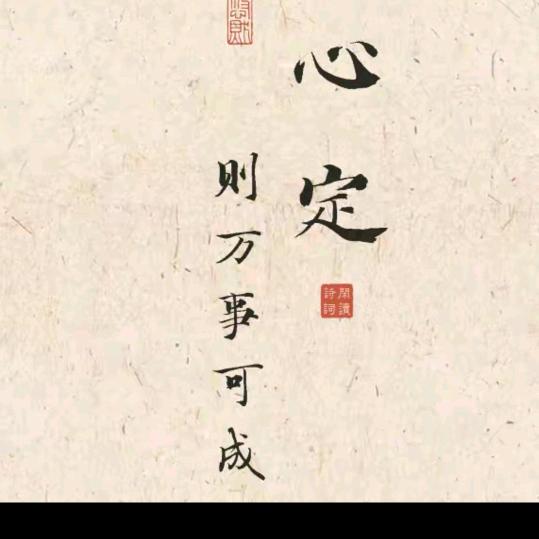 心定
閑讀
詩詞
则万事可成